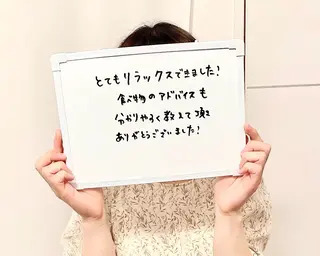 とてもリラックスできました!
食べ物のアドバイスも
分かりやすく教えて頂き
ありがとうございました!